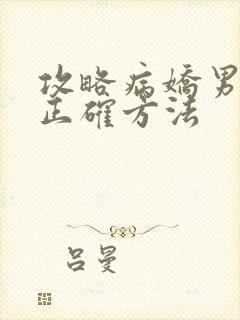 攻略病嬌男
正確方法
呂曼